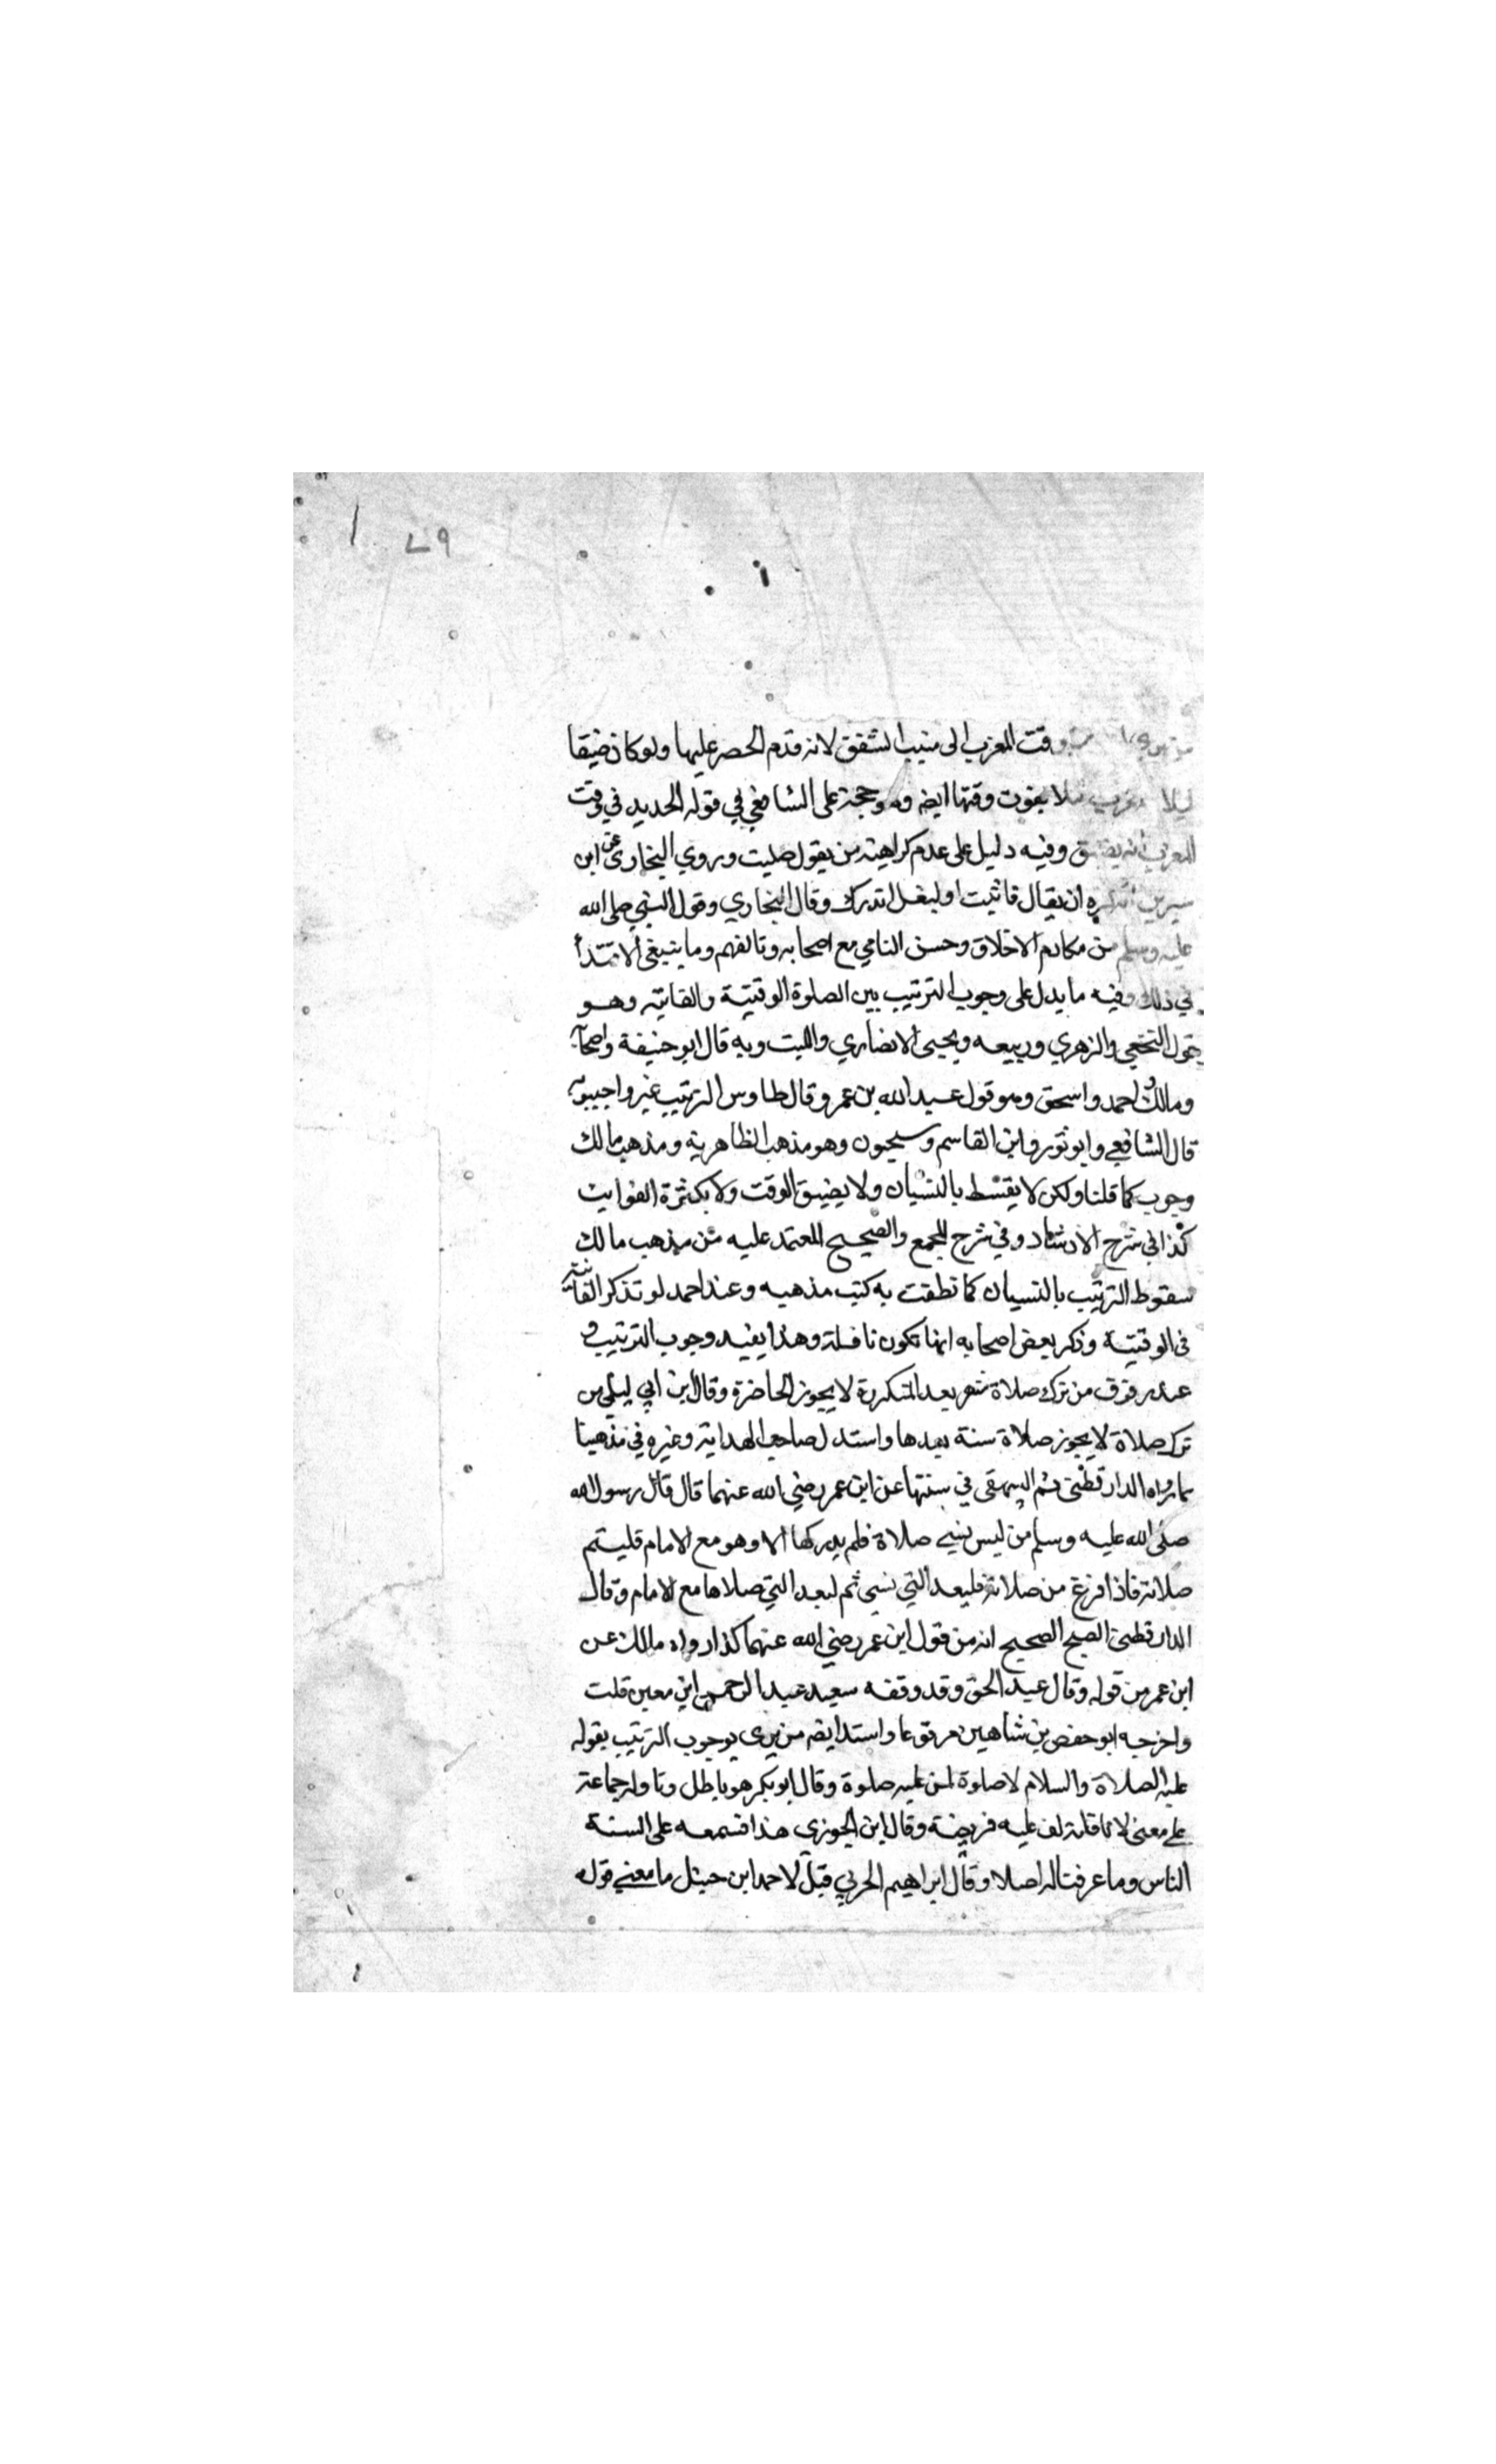 ٧٩
وقت المغرب الى مغيب الشفق لانه قدم الحصر عليها ولو كان ضيقا
ليلا يفوت وقتها ايضه وهو حجة على الشافعي في قوله الجديد في وقت
المغرب انه يضيق وفيه دليل على عدم كراهية من يقول صليت وروي البخاري عن ابن
سيرين انه كره ان يقال فاتيت او ليفل اندرك وقال البخاري وقول النبي صلى الله
عليه وسلم من مكارم الاخلاق وحسن التاني مع اصحابه وتالفهم وما ينبغي الاقتدا
في ذلك وفيه ما يدل على وجوب الترتيب بين الصلوة الوقتية والفايتة وهو
قول النخعي والزهري وربيعه ويحيى الانصاري والليث وبه قال ابو حنيفة واصحابه
ومالك واحمد واسحق وهو قول عبد الله بن عمر وقال طاوس الترتيب غير واجب وبه
قال الشافعي وابو ثور وابن القاسم وسحنون وهو مذهب الظاهرية ومذهب مالك
وجوب كما قلنا ولكن لا يقسط بالنسيان ولا يضيق الوقت ولا بكثرة الفوايت
كذا في شرح الارشاد وفي شرح المجمع والصحيح المعتمد عليه من مذهب مالك
سقوط الترتيب بالنسيان كما نطقت به كتب مذهبه وعند احمد لو تذكر الفائتة
في الوقتية وذكر بعض اصحابه انها تكون نافلة وهذا يفيد وجوب الترتيب و
عند زفر من ترك صلاة شهر بعد المتكررة لا يجوز الحاضرة وقال ابن ابي ليلى من
ترك صلاة لا يجوز صلاة سنة بعدها واستدل صاحب الهداية وغيره في مذهبنا
بما رواه الدارقطني ثم البيهقي في سننها عن ابن عمر رضي الله عنهما قال قال رسول الله
صلى الله عليه وسلم من ليس نسي صلاة فلم يدركها الا وهو مع الامام فليتم
صلاته فاذا فرغ من صلاته فليعد التي نسي ثم ليعد التي صلاها مع الامام وقال
الدارقطني الصحيح الصحيح انه من قول ابن عمر رضي الله عنهما كذا رواه مالك عن
ابن عمر من قوله وقال عبد الحق وقد وقفه سعيد عبد الرحمن ابن معين قلت
واخرجه ابو حفص بن شاهين مرفوعا واستدا ايضه من يرى بوجوب الترتيب بقوله
عليه الصلاة والسلام لا صلوة لمن عليه صلوة وقال ابو بكر هو باطل وتاوله جماعة
على معنى لا نافلة لمن عليه فريضة وقال ابن الجوزي هذا فسمعه على السنة
الناس وما عرفنا له اصلا وقال ابراهيم الحربي قيل لاحمد ابن حنبل ما معنى قوله